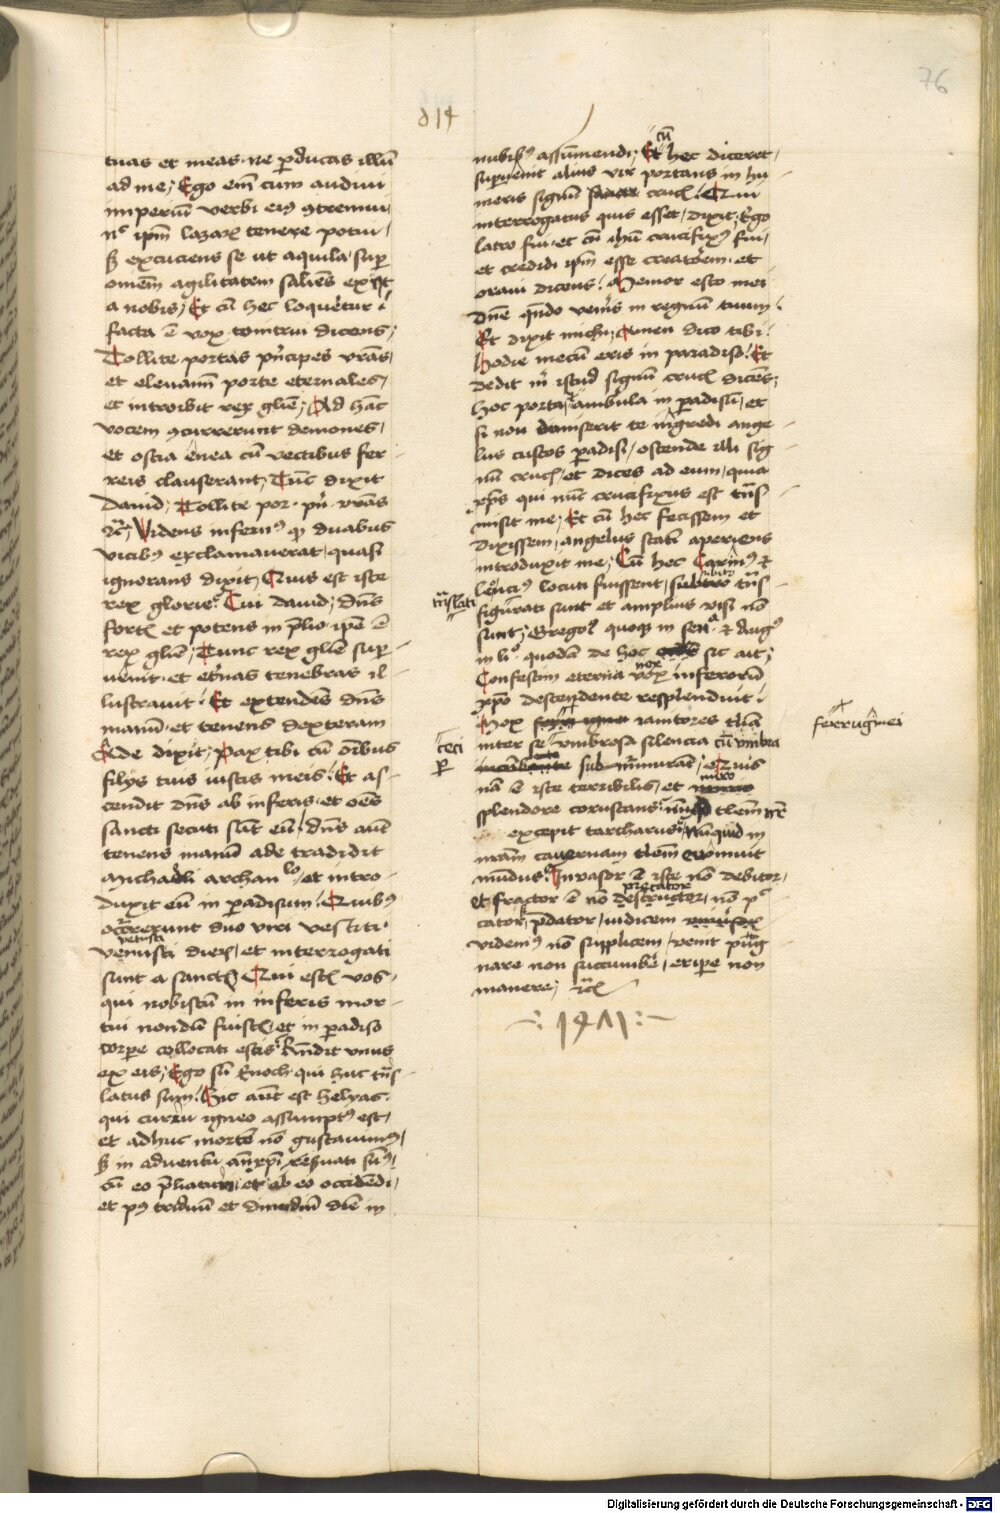 76
814
tuas et meas. ne ꝑducas illū
ad me; Ego em̄ cum audiui
imperiū verbi eiꝰ ꝯtremui
nᶜ ip̄m lazarū tenere potui,
sꝫ excuciens se ut aquila. suꝑ
omēm agilitatem saliēs exiit
a nobis; Et cū hec loqueret̉ur
facta ē vox tonitrui dicens;
Tollite portas pn̄cipes vrās,
et eleuamī porte eternales,
et introibit rex glīe; Ad hāc
vocem ꝯcurrerunt demones,
et ostia enea cū vectibus fer
reis clauserant; Tūc dixit
dauid; Tollite por. pn̄ vrās
ꝛc̄; Videns infernꝰ qꝫ duabus
vicibꝰ exclamauerat, quasi
ignorans dixit; Quis est iste
rex glorie. Cui dauid; dn̄s
fortꝭ et potens in p̄lio ip̄e ē
rex glīe; Tunc rex glīe suꝑ
uenit. et et̉nas tenebras il
lustrauit. Et extendēs dn̄s
manū. et tenens dexteram
Ade dixit; Pax tibi cū om̄bus
filijs tuis iustis meis. Et as
cendit dn̄s ab inferis. et oēs
sancti secuti sūt eū. dn̄s aūt
tenens manū ade tradidit
michaeli archan lo. et intro
duxit eū in ꝑadisum. Quibꝰ
occrrerunt duo viri vestiti
vetusti
venusti dieꝝ, et interrogati
sunt a sanctꝭ Qui estꝭ vos.
qui nobiscū in inferis mor
tui nondū fuistꝭ, et in ꝑadiso
corpe collocati estis. Rn̄dit vnus
ex eis; Ego sū Enoch. qui huc trās
latus sum. Hic aūt est helyas.
qui curru igneo assumptꝰ est,
et adhuc mortē nō gustauimꝰ,
sꝫ in aduentū anxp̄i reſ̉uati sumꝰ,
cū eo p̄liaturi. et ab eo occidēdi,
et pꝰ triduū et dimidiū diē in
nubibꝰ assumendi; Et cū hec diceret,
suꝑuenit alius vir portans in hu
meris signū crucꝭ. Qui
interrogatus quis esset, dixit; Ego
latro fui. et cū ihū crucifixꝰ fui,
et credidi ip̄m esse creatorem. et
oraui dicens. Memor esto mei
dn̄e qn̄do ven̉is in regnū tuum.
Et dixit michi; Amen dico tibi.
hodie mecū eris in paradiso. Et
dedit m̄ istud signū crucꝭ dicēs;
hoc portās ambula in ꝑadisū, et
si non dimiserit te ingredi ange
lus custos ꝑadisi, ostende illi sig
nū crucꝭ, et dices ad eum, quia
xp̄s qui nūc crucifixus est trās
misit me; Et cū hec fecissem et
dixissem, angelus statī aperiens
introduxit me; Cū hec Carinꝰ et
leoncius locuti fuissent, subito trās
trāslati
figurati sunt et amplius visi nō
sunt; Gregoꝰ quoqꝫ in ser. et Augꝰ
in liᵒ quodā de hoc sic ait;
Confestim eterna nox inferorū
xp̄o descendente resplenduit.
ferruginei
Mox ianitores
inter se vmbrosa silencia cū vmbra
ceci
sub murmurāt; Quis
nā ē iste terribilis, et niueo
splendore coruscans. nūqꝫ tlēm nr̄
excepit tartharus. Nūquid in
nrām cauernam tlēm euomuit
mūdus. Inuasor ē iste nō debitor,
et fractor ē nō peccator
destructor, nō pᶜ
cator, p̄dator, iudicem
videmꝰ nō supplicem, venit pug
nare non succumbē, eripe non
manere; ꝛcꝭ
1471